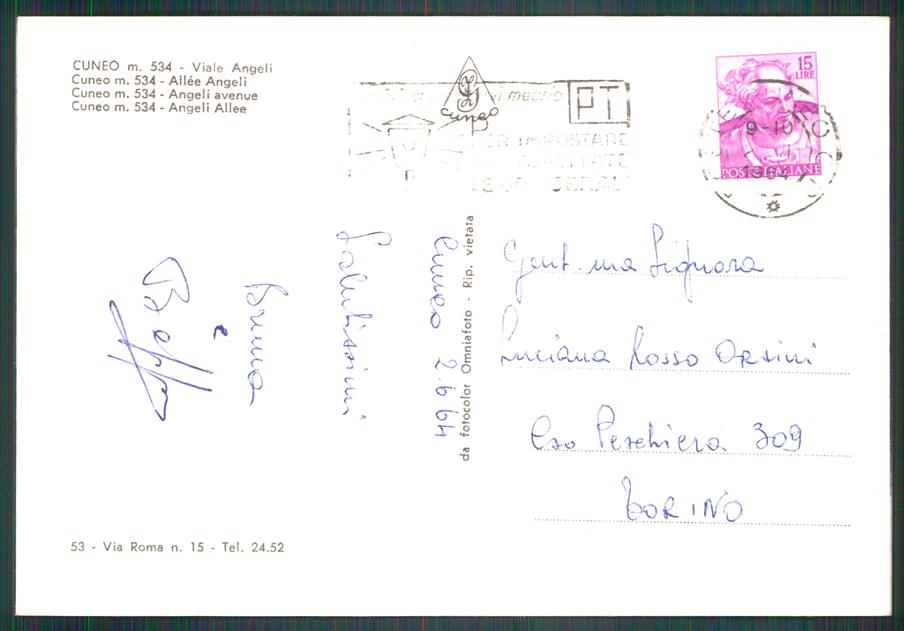 CUNEO m. 534 - Viale Angeli
Cuneo m. 534 - Allée Angeli
Cuneo m. 534 - Angeli avenue
Cuneo m. 534 - Angeli Allee
Cuneo
PT
IMPOSTARE
15
LIRE
POSTE ITALIANE
9-10
1964
Cuneo 2.6.64
Salutissimi
Bruna
e
Beppe
da fotocolor Omniafoto - Rip. vietata
Gent.ma Signora
Luciana Rosso Orsini
Cso Peschiera 309
TORINO
53 - Via Roma n. 15 - Tel. 24.52